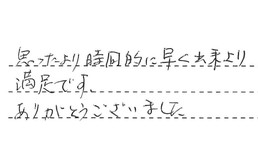 思ったより時間的に早く出来より
満足です。
ありがとうございました